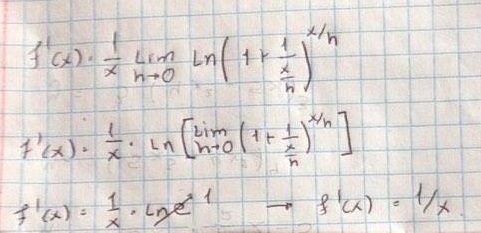 f'(x) = 1/x lim h→0 Ln(1 + 1/(x/h))^x/h
f'(x) = 1/x · Ln[lim h→0 (1 + 1/(x/h))^x/h]
f'(x) = 1/x · Ln e 1 → f'(x) = 1/x